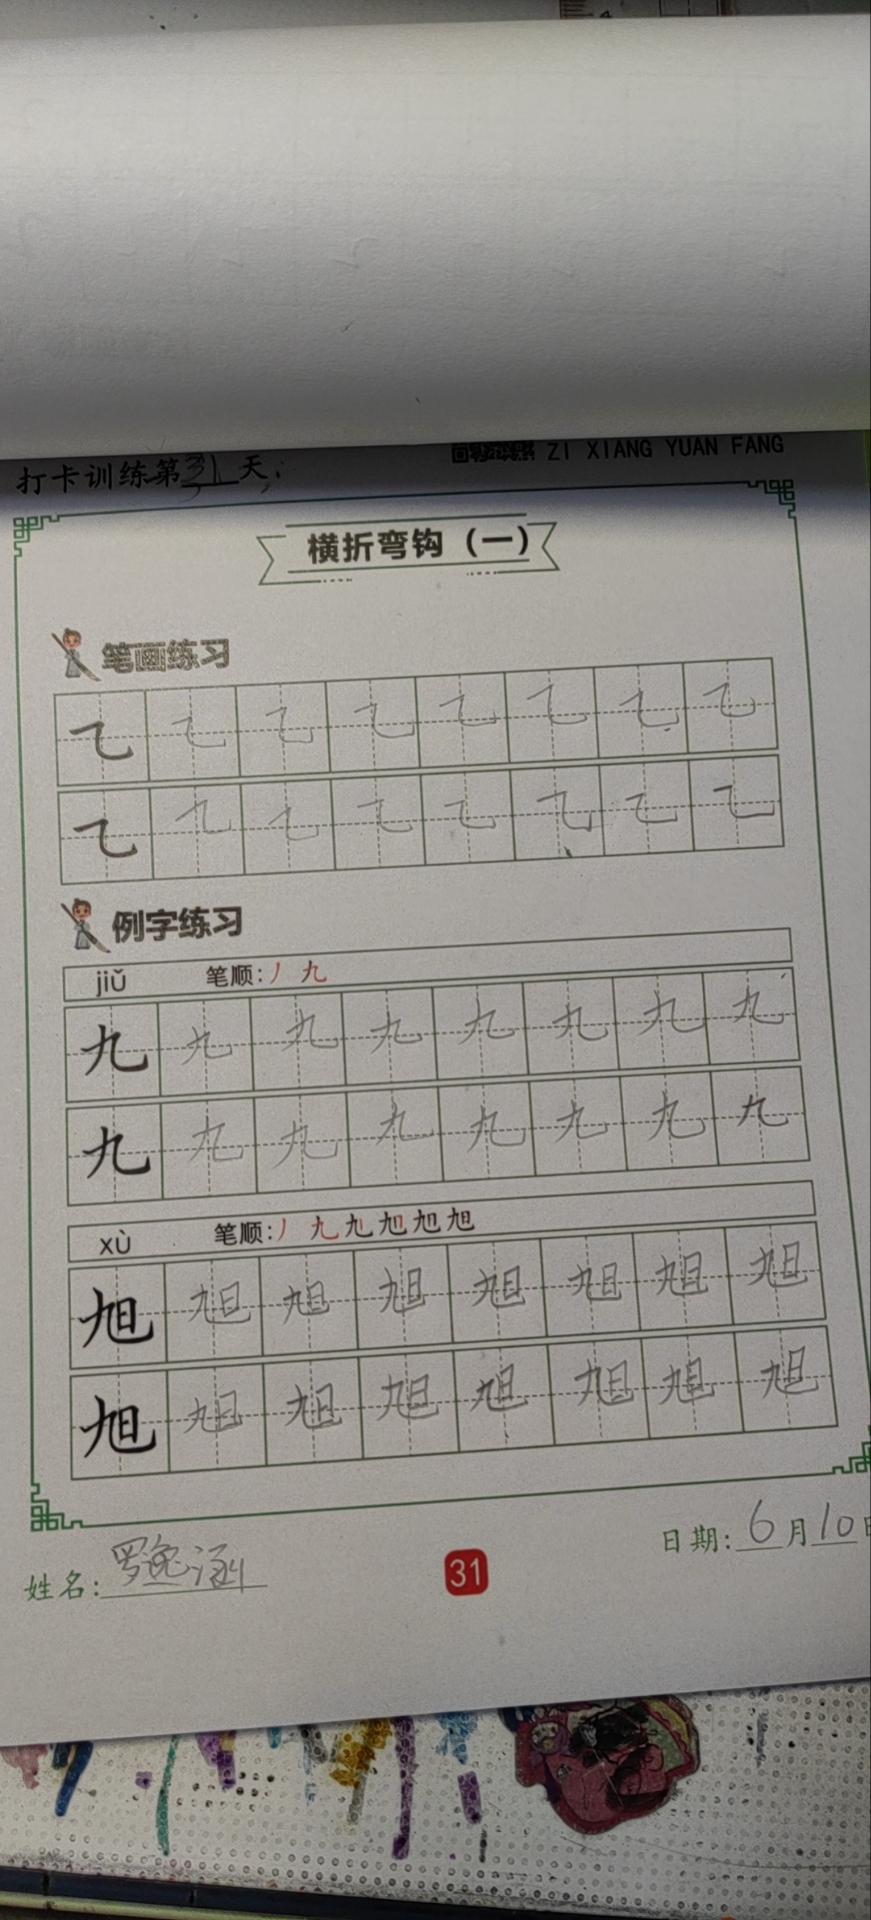 打卡训练第31天:
ZI XIANG YUAN FANG
横折弯钩（一）
笔画练习
㇈ ㇈ ㇈ ㇈ ㇈ ㇈ ㇈ ㇈
㇈ ㇈ ㇈ ㇈ ㇈ ㇈ ㇈ ㇈
例字练习
jiǔ 笔顺:丿 九
九 九 九 九 九 九 九 九
九 九 九 九 九 九 九 九
xù 笔顺:丿 九
旭 旭 旭 旭 旭 旭 旭 旭
旭 旭 旭 旭 旭 旭 旭 旭
姓名:罗逸涵
31
日期:6月10日